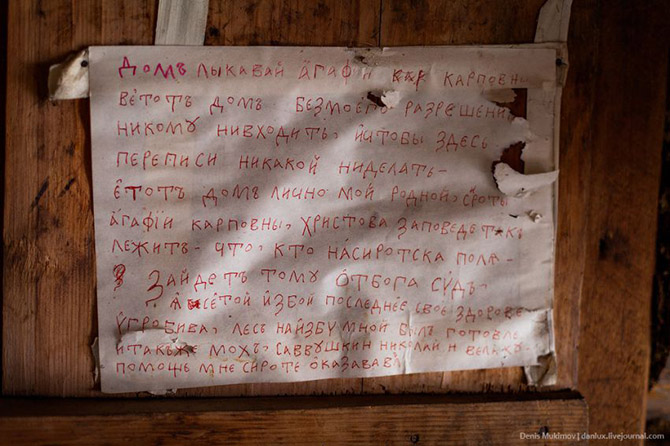 Домъ лыкавай а҆гафїи карповны
ве҆тотъ домъ безмоего разрешенїя
никому нивходить, и҆чтобы здесь
переписи никакой ниделать-
е҆тотъ домъ лично мой родной, сироты
а҆гафїи карповны, христова заповедетакъ
лежитъ- что, кто на́сиротска поля-
зайдетъ тому о҆тбога су́дъ.
сетой и҆збой последнее свое здоровье
у҆гробива, лесъ наи҆збу мной былъ готовле
и҆такъже мохъ, саввушкин николай н
помощь мнесироте о҆казавав
Denis Mukimov | danlux.livejournal.com